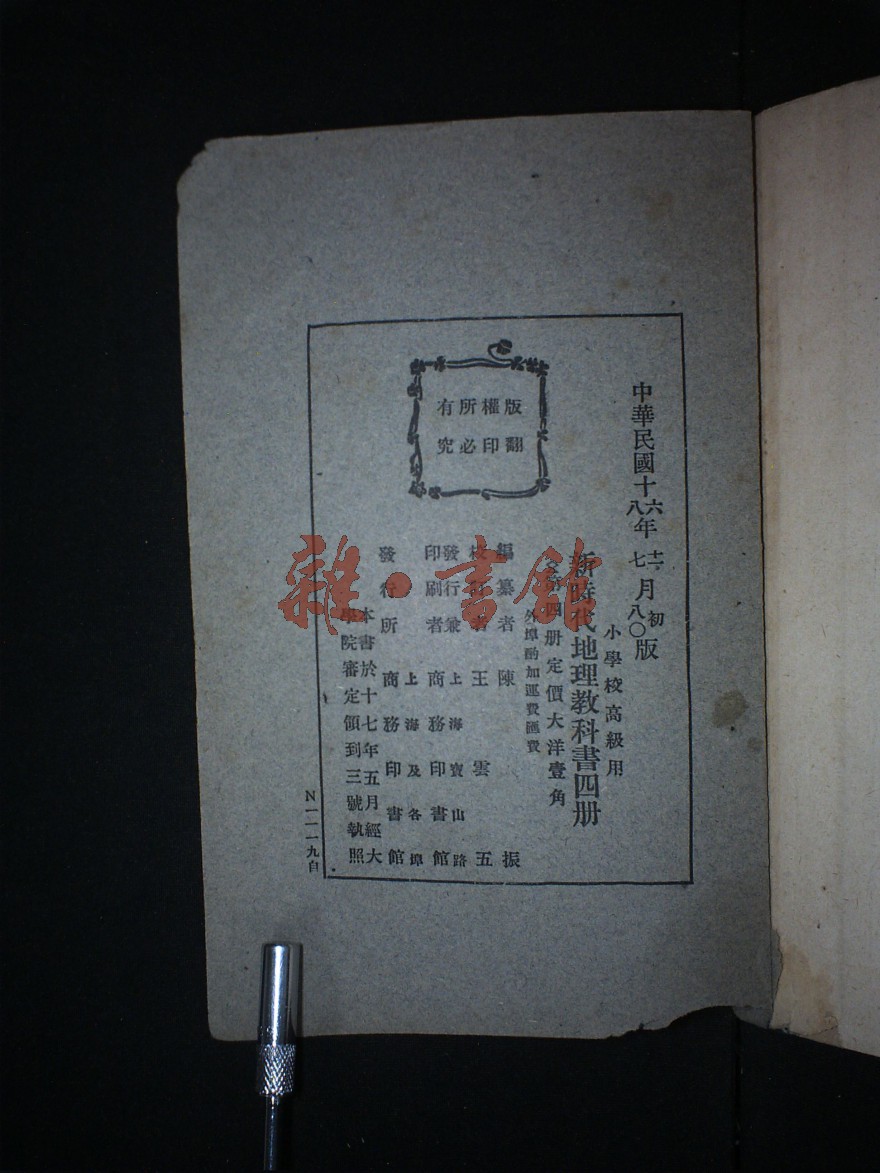 中華民國十六年十二月初版
八年七月八〇版
小學校高級用
新時代地理教科書四册
第四册定價大洋壹角
外埠酌加運費匯費
版權所有
翻印必究
編纂者 陳振
校訂者 王雲五
發行兼印刷者 上海寶山路 商務印書館
發行所 上海及各埠 商務印書館
本書於十七年五月經大
學院審定領到三號執照
N一一一九自
雜·書館